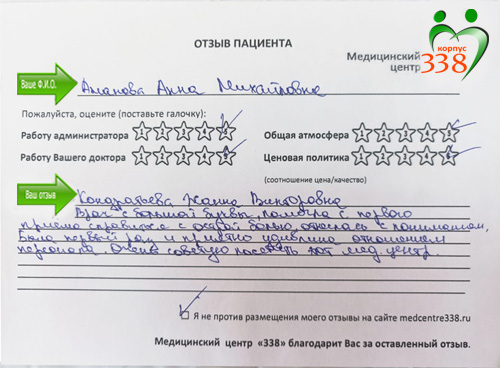 корпус
338
ОТЗЫВ ПАЦИЕНТА
Медицинский
центр
Ваше Ф.И.О.
Аманова Анна Михайловна
Пожалуйста, оцените (поставьте галочку):
Работу администратора 1 2 3 4 5
Общая атмосфера 1 2 3 4 5
Работу Вашего доктора 1 2 3 4 5
Ценовая политика 1 2 3 4 5
(соотношение цена/качество)
Ваш отзыв
Кондратьева Жанна Викторовна
Врач с большой буквы, помогла с первого
приема справиться с острой болью, отнеслась с пониманием.
Была первый раз и приятно удивлена отношением
персонала. Очень советую посетить этот мед. центр.
Я не против размещения моего отзывы на сайте medcentre338.ru
Медицинский центр «338» благодарит Вас за оставленный отзыв.